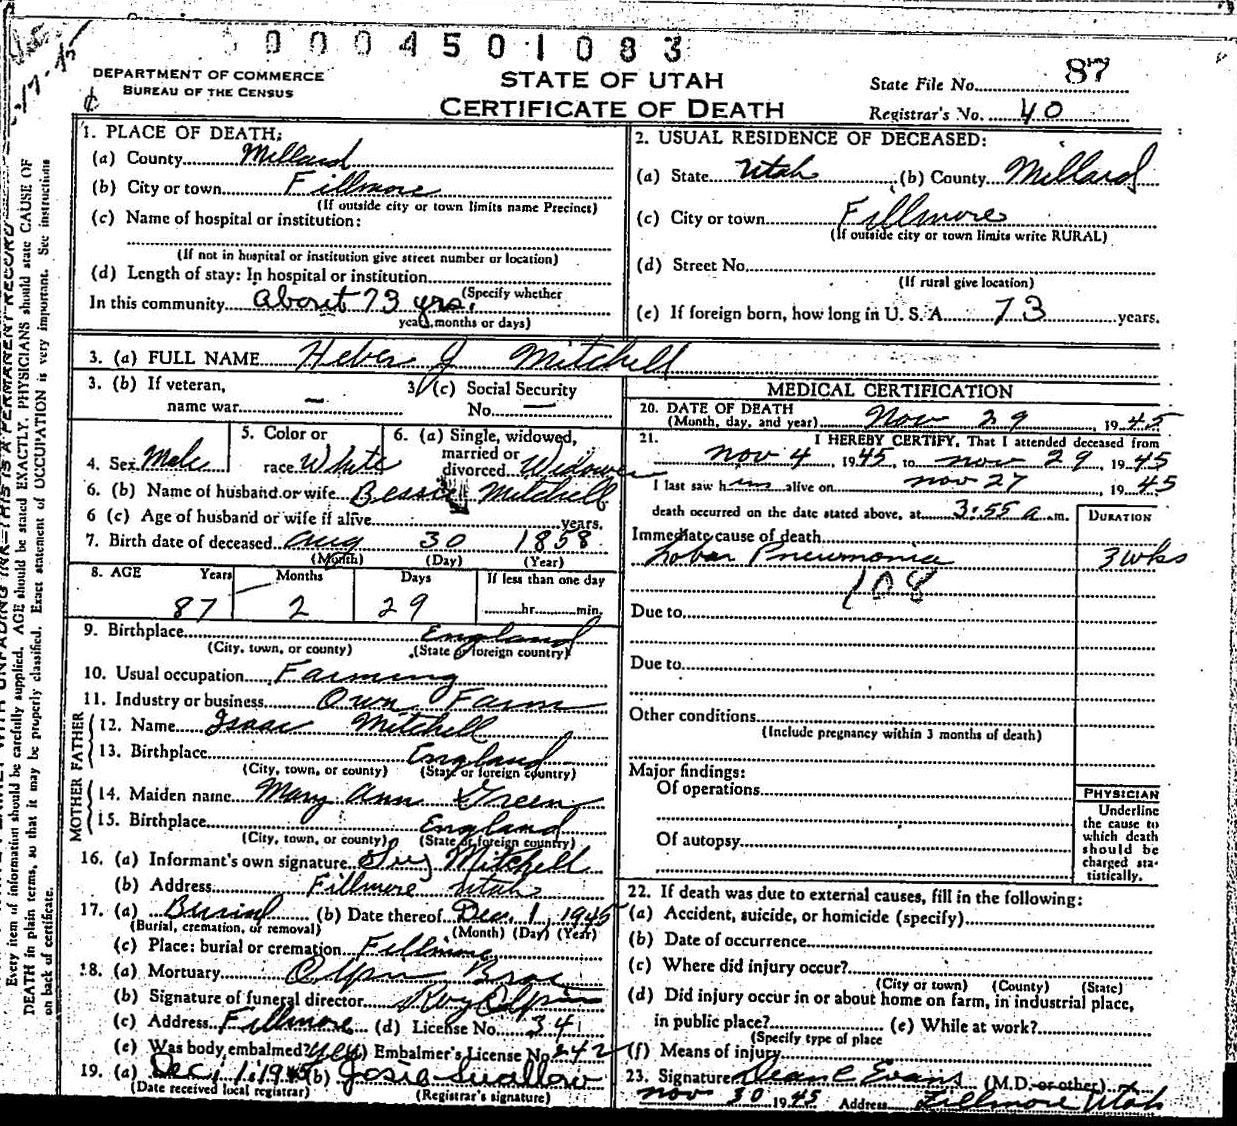 0 0 0 4 5 0 1 0 8 3
DEPARTMENT OF COMMERCE
BUREAU OF THE CENSUS
STATE OF UTAH
CERTIFICATE OF DEATH
State File No. 87
Registrar's No. 40
1. PLACE OF DEATH:
(a) County Millard
(b) City or town Fillmore
(If outside city or town limits name Precinct)
(c) Name of hospital or institution:
(If not in hospital or institution give street number or location)
(d) Length of stay: In hospital or institution
(Specify whether
In this community about 73 yrs.
years, months or days)
2. USUAL RESIDENCE OF DECEASED:
(a) State Utah (b) County Millard
(c) City or town Fillmore
(If outside city or town limits write RURAL)
(d) Street No.
(If rural give location)
(e) If foreign born, how long in U. S. A. 73 years.
3. (a) FULL NAME Heber J Mitchell
3. (b) If veteran, name war —
3. (c) Social Security No. —
4. Sex Male
5. Color or race White
6. (a) Single, widowed, married or divorced Widower
6. (b) Name of husband or wife Bessie Mitchell
6 (c) Age of husband or wife if alive years.
7. Birth date of deceased Aug 30 1858
(Month) (Day) (Year)
8. AGE Years Months Days If less than one day
87 2 29 hr. min.
9. Birthplace England
(City, town, or county) (State or foreign country)
10. Usual occupation Farming
11. Industry or business Own Farm
FATHER
12. Name Isaac Mitchell
13. Birthplace England
(City, town, or county) (State or foreign country)
MOTHER
14. Maiden name Mary Ann Green
15. Birthplace England
(City, town, or county) (State or foreign country)
16. (a) Informant's own signature Mitchell
(b) Address Fillmore Utah
17. (a) Burial (b) Date thereof Dec. 1, 1945
(Burial, cremation, or removal) (Month) (Day) (Year)
(c) Place: burial or cremation Fillmore
18. (a) Mortuary Olpin Bros
(b) Signature of funeral director Roy Olpin
(c) Address Fillmore (d) License No. 341
(e) Was body embalmed? yes (f) Embalmer's License No. 242
19. (a) Dec, 1, 1945 (b) Josie Swallow
(Date received local registrar) (Registrar's signature)
MEDICAL CERTIFICATION
20. DATE OF DEATH
(Month, day, and year) Nov 29 1945
21. I HEREBY CERTIFY, That I attended deceased from
Nov 4, 1945, to Nov 29 1945
I last saw him alive on Nov 27, 1945
death occurred on the date stated above, at 3:55 a.m.
DURATION
Immediate cause of death
Lobar Pneumonia 3 wks
108
Due to
Due to
Other conditions
(Include pregnancy within 3 months of death)
Major findings:
Of operations
Of autopsy
PHYSICIAN
Underline
the cause to
which death
should be
charged sta-
tistically.
22. If death was due to external causes, fill in the following:
(a) Accident, suicide, or homicide (specify)
(b) Date of occurrence
(c) Where did injury occur?
(City or town) (County) (State)
(d) Did injury occur in or about home on farm, in industrial place,
in public place? (e) While at work?
(Specify type of place
(f) Means of injury
23. Signature Dean C Evans (M.D. or other)
Nov 30 1945 Address Fillmore Utah
Every item of information should be carefully supplied. AGE should be stated EXACTLY. PHYSICIANS should state CAUSE OF
DEATH in plain terms, so that it may be properly classified. Exact statement of OCCUPATION is very important. See instructions
on back of certificate.
WITH UNFADING INK—THIS IS A PERMANENT RECORD